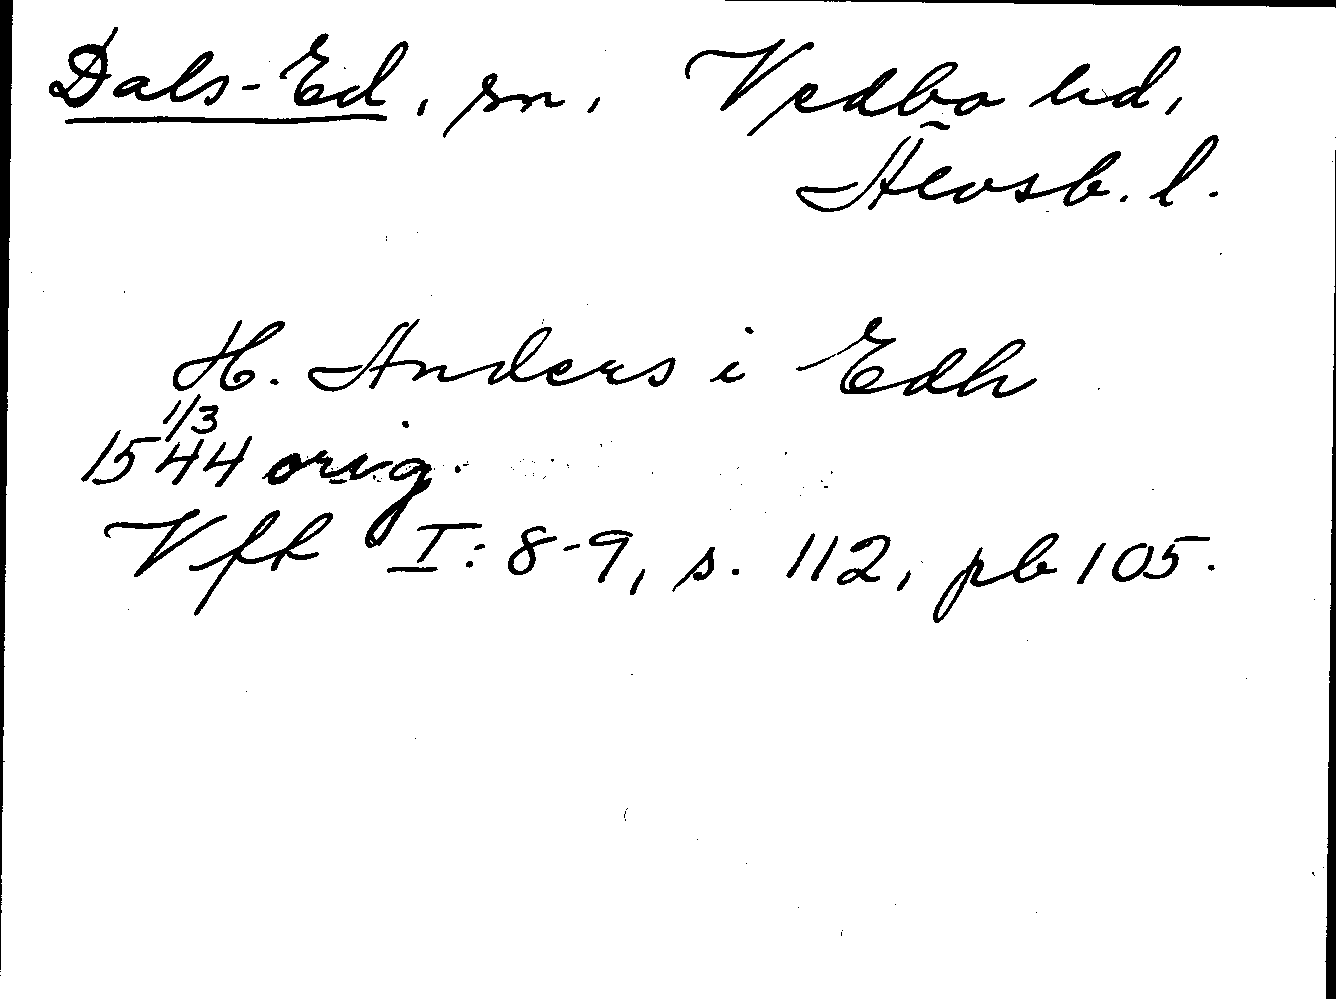 Dals-Ed, sn, Vedbo hd,
Älvsb. l.
H. Anders i Edh
1/3
1544 orig.
Vff I: 8-9, s. 112, pb 105.